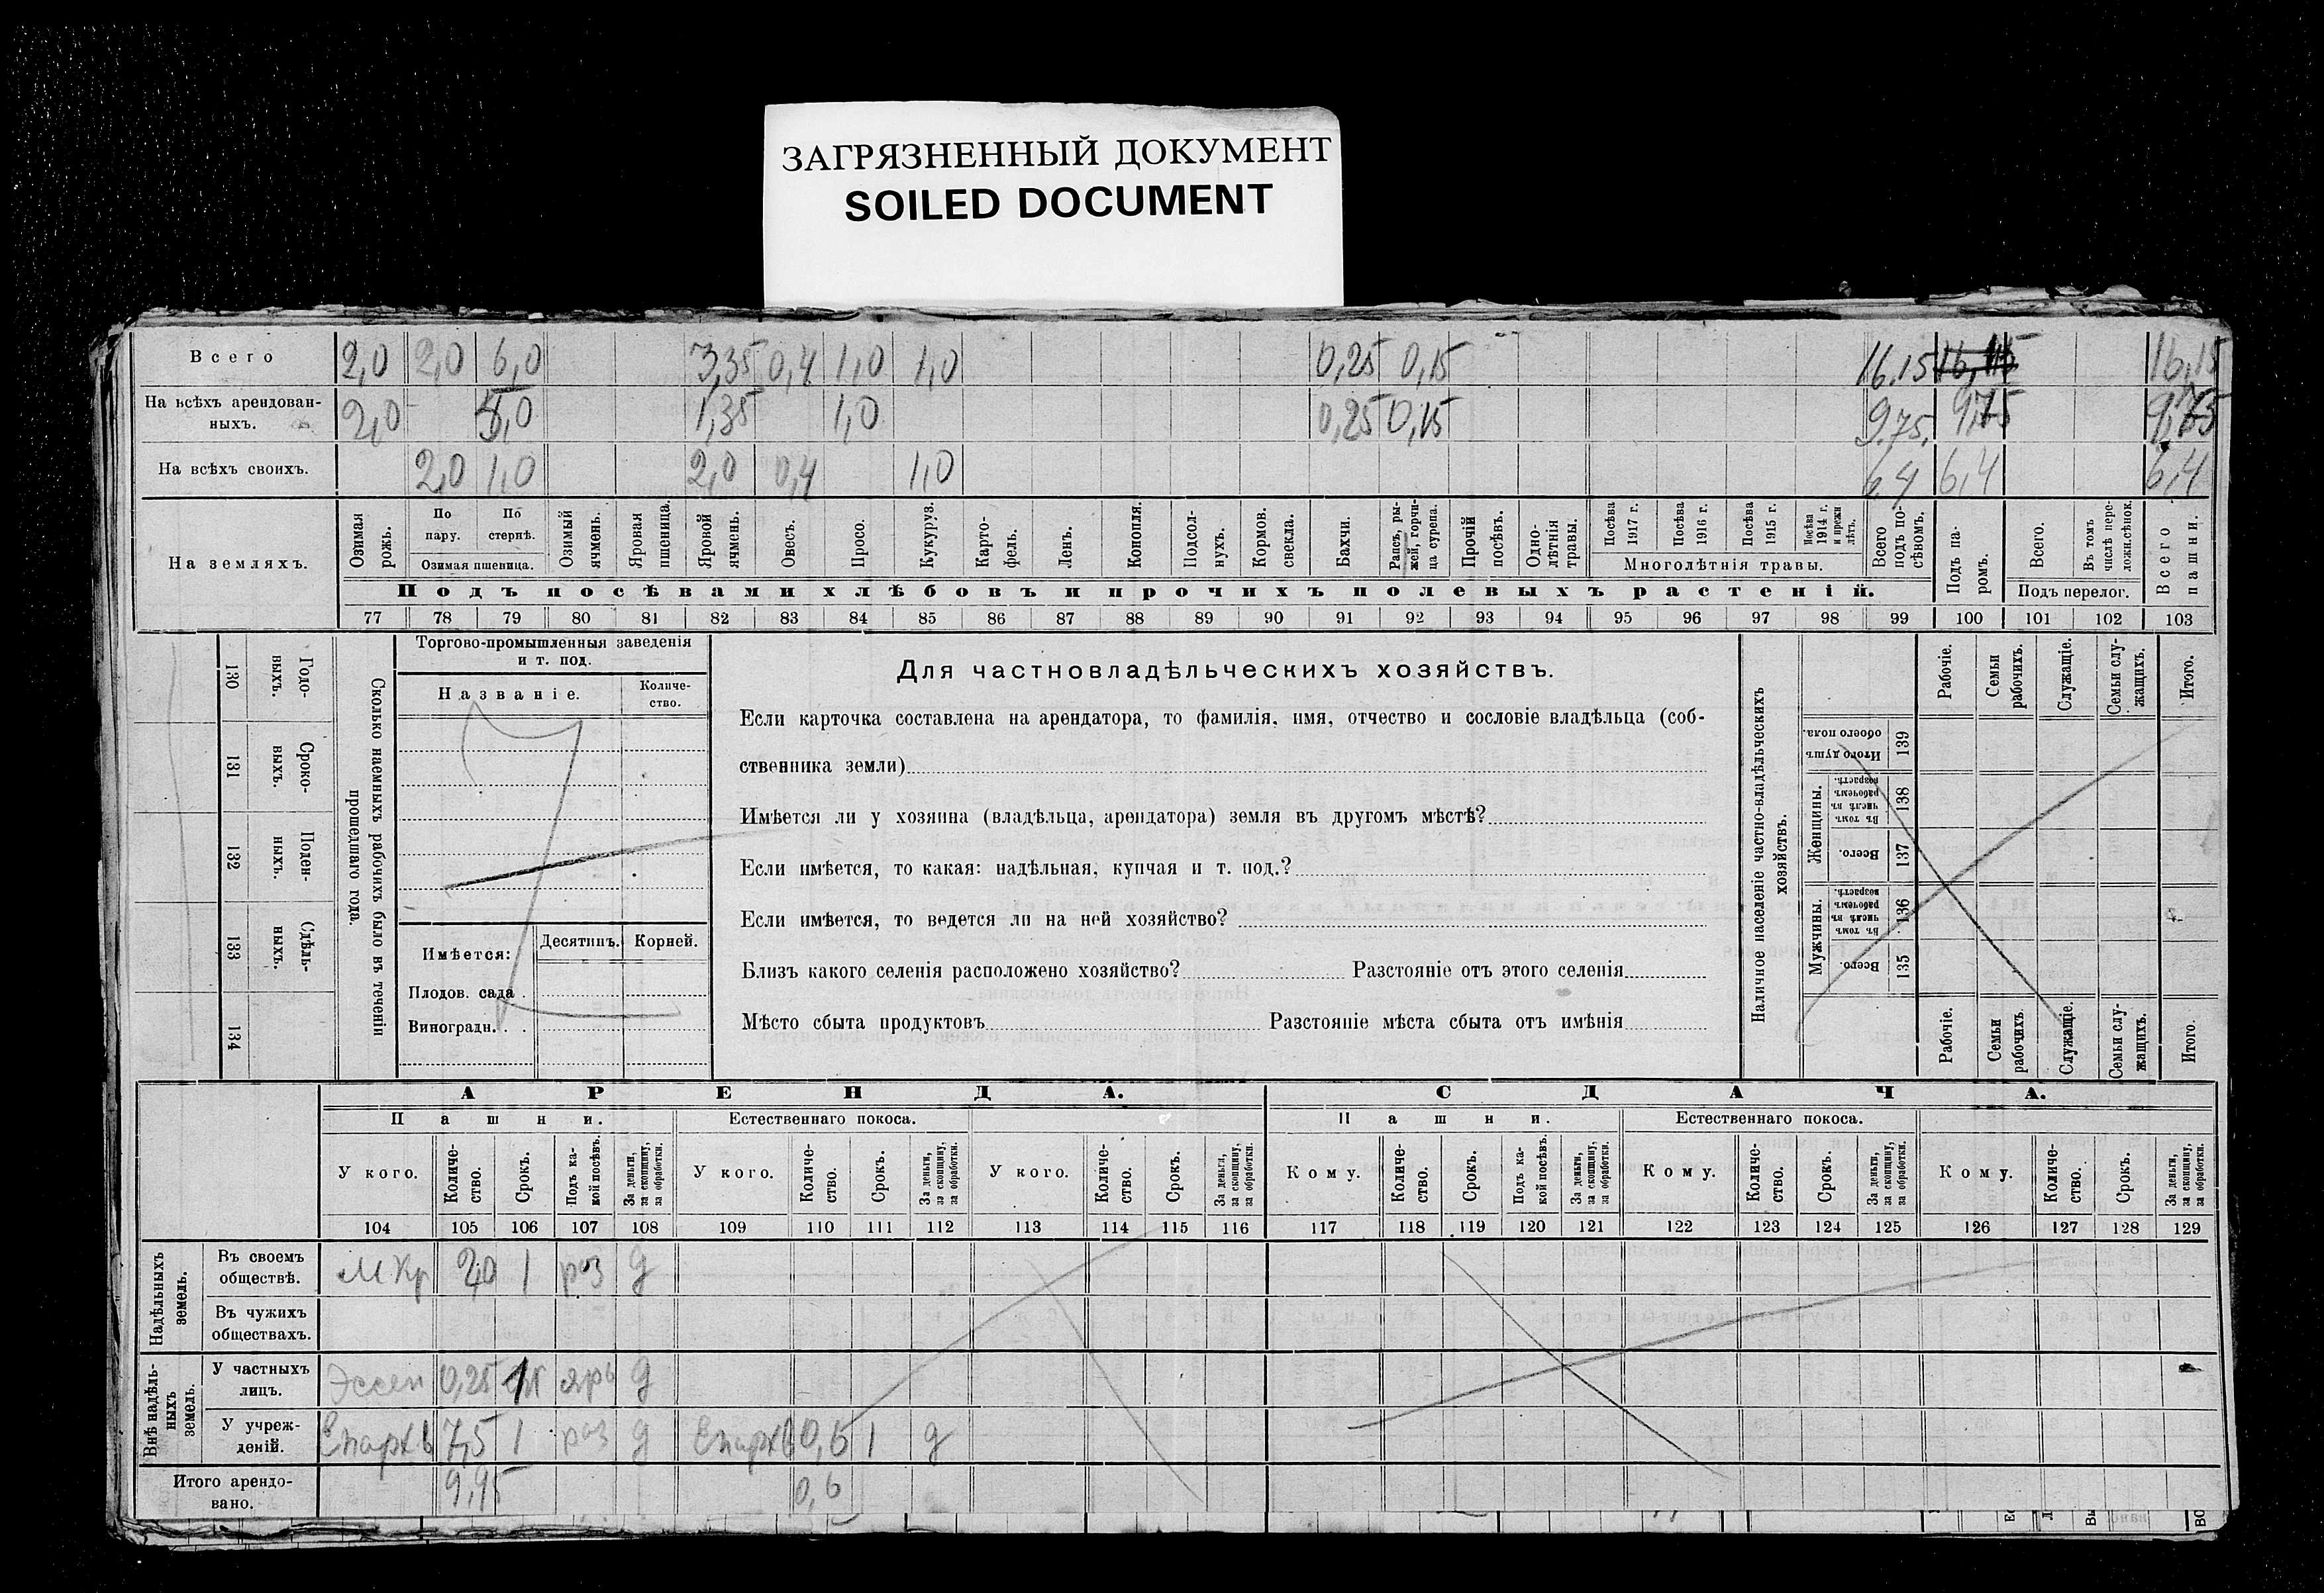 ЗАГРЯЗНЕННЫЙ ДОКУМЕНТ
SOILED DOCUMENT
Всего 2,0 2,0 6,0 3,35 0,4 1,0 1,0 0,25 0,15 16.15 16,15 16,15
На всѣхъ арендован-
ныхъ. 2,0 5,0 1,35 1,0 0,25 0,15 9.75. 9,75 9,75
На всѣхъ своихъ. 2,0 1,0 2,0 0,4 1,0 6,4 6,4 6,4
На земляхъ.
Озимая рожь.
По пару.
По стернѣ.
Озимая пшеница.
Озимый ячмень.
Яровая пшеница.
Яровой ячмень.
Овесъ.
Просо.
Кукуруз.
Карто-
фель.
Ленъ.
Конопля.
Подсол-
нухъ.
Кормов. свекла.
Бахчи.
Рапсъ, ры-
жей, горчи-
ца сурепа.
Прочій посѣвъ.
Одно-
лѣтнія травы.
Посѣва 1917 г.
Посѣва 1916 г.
Посѣва 1915 г.
Посѣва 1914 г. и прежн лѣтъ.
Многолѣтнія травы.
Всего подъ по-
сѣвомъ.
Подъ па-
ромъ.
Всего.
Въ томъ числѣ пере-
ложн.сѣнок.
Подъ перелог.
Всего пашни.
Подъ посѣвами хлѣбовъ и прочихъ полевыхъ растеній.
77 78 79 80 81 82 83 84 85 86 87 88 89 90 91 92 93 94 95 96 97 98 99 100 101 102 103
130 Годо-
ныхъ.
131 Сроко-
ныхъ.
132 Поден-
ныхъ.
133 Сдѣль-
ныхъ.
134
Сколько наемныхъ рабочихъ было въ теченіи
прошедшаго года.
Торгово-промышленныя заведенія
и т. под.
Названіе.
Количе-
ство.
Имѣется: Десятинъ. Корней.
Плодов. сада .
Виноградн. . .
Для частновладѣльческихъ хозяйствъ.
Если карточка составлена на арендатора, то фамилія, имя, отчество и сословіе владѣльца (соб-
ственника земли)
Имѣется ли у хозяина (владѣльца, арендатора) земля въ другомъ мѣстѣ?
Если имѣется, то какая: надѣльная, купчая и т. под.?
Если имѣется, то ведется ли на ней хозяйство?
Близъ какого селенія расположено хозяйство? Разстояніе отъ этого селенія
Мѣсто сбыта продуктовъ Разстояніе мѣста сбыта отъ имѣнія
Наличное населеніе частно-владѣльческихъ
хозяйствъ.
Рабочіе.
Семьи рабочихъ.
Служащіе.
Семьи слу-
жащихъ.
Итого.
Итого душъ обоего пола. 139
Женщины.
Въ томъ числѣ въ рабочемъ возрастѣ. 138
Всего. 137
Мужчины.
Въ томъ числѣ въ рабочемъ возрастѣ. 136
Всего. 135
Рабочіе.
Семьи рабочихъ.
Служащіе.
Семьи слу-
жащихъ.
Итого.
АРЕНДА. СДАЧА.
Пашни. Естественнаго покоса. Пашни. Естественнаго покоса.
У кого.
Количе-
ство.
Срокъ.
Подъ ка-
кой посѣвъ.
За деньги, за скопщину, за обработки.
У кого.
Количе-
ство.
Срокъ.
За деньги, за скопщину, за обработки.
У кого.
Количе-
ство.
Срокъ.
За деньги, за скопщину, за обработки.
Кому.
Количе-
ство.
Срокъ.
Подъ ка-
кой посѣвъ.
За деньги, за скопщину, за обработки.
Кому.
Количе-
ство.
Срокъ.
За деньги, за скопщину, за обработки.
Кому.
Количе-
ство.
Срокъ.
За деньги, за скопщину, за обработки.
104 105 106 107 108 109 110 111 112 113 114 115 116 117 118 119 120 121 122 123 124 125 126 127 128 129
Надѣльныхъ земель.
Въ своемъ
обществѣ. М Кр 2,0 1 раз д
Въ чужихъ
обществахъ.
Внѣ надѣль-
ныхъ земель.
У частныхъ
лицъ. Эссен 0,25 1 ярь д
У учреж-
деній. Епархв 7,5 1 раз д Епархв 0,6 1 д
Итого арендо-
вано. 9,95 0,6